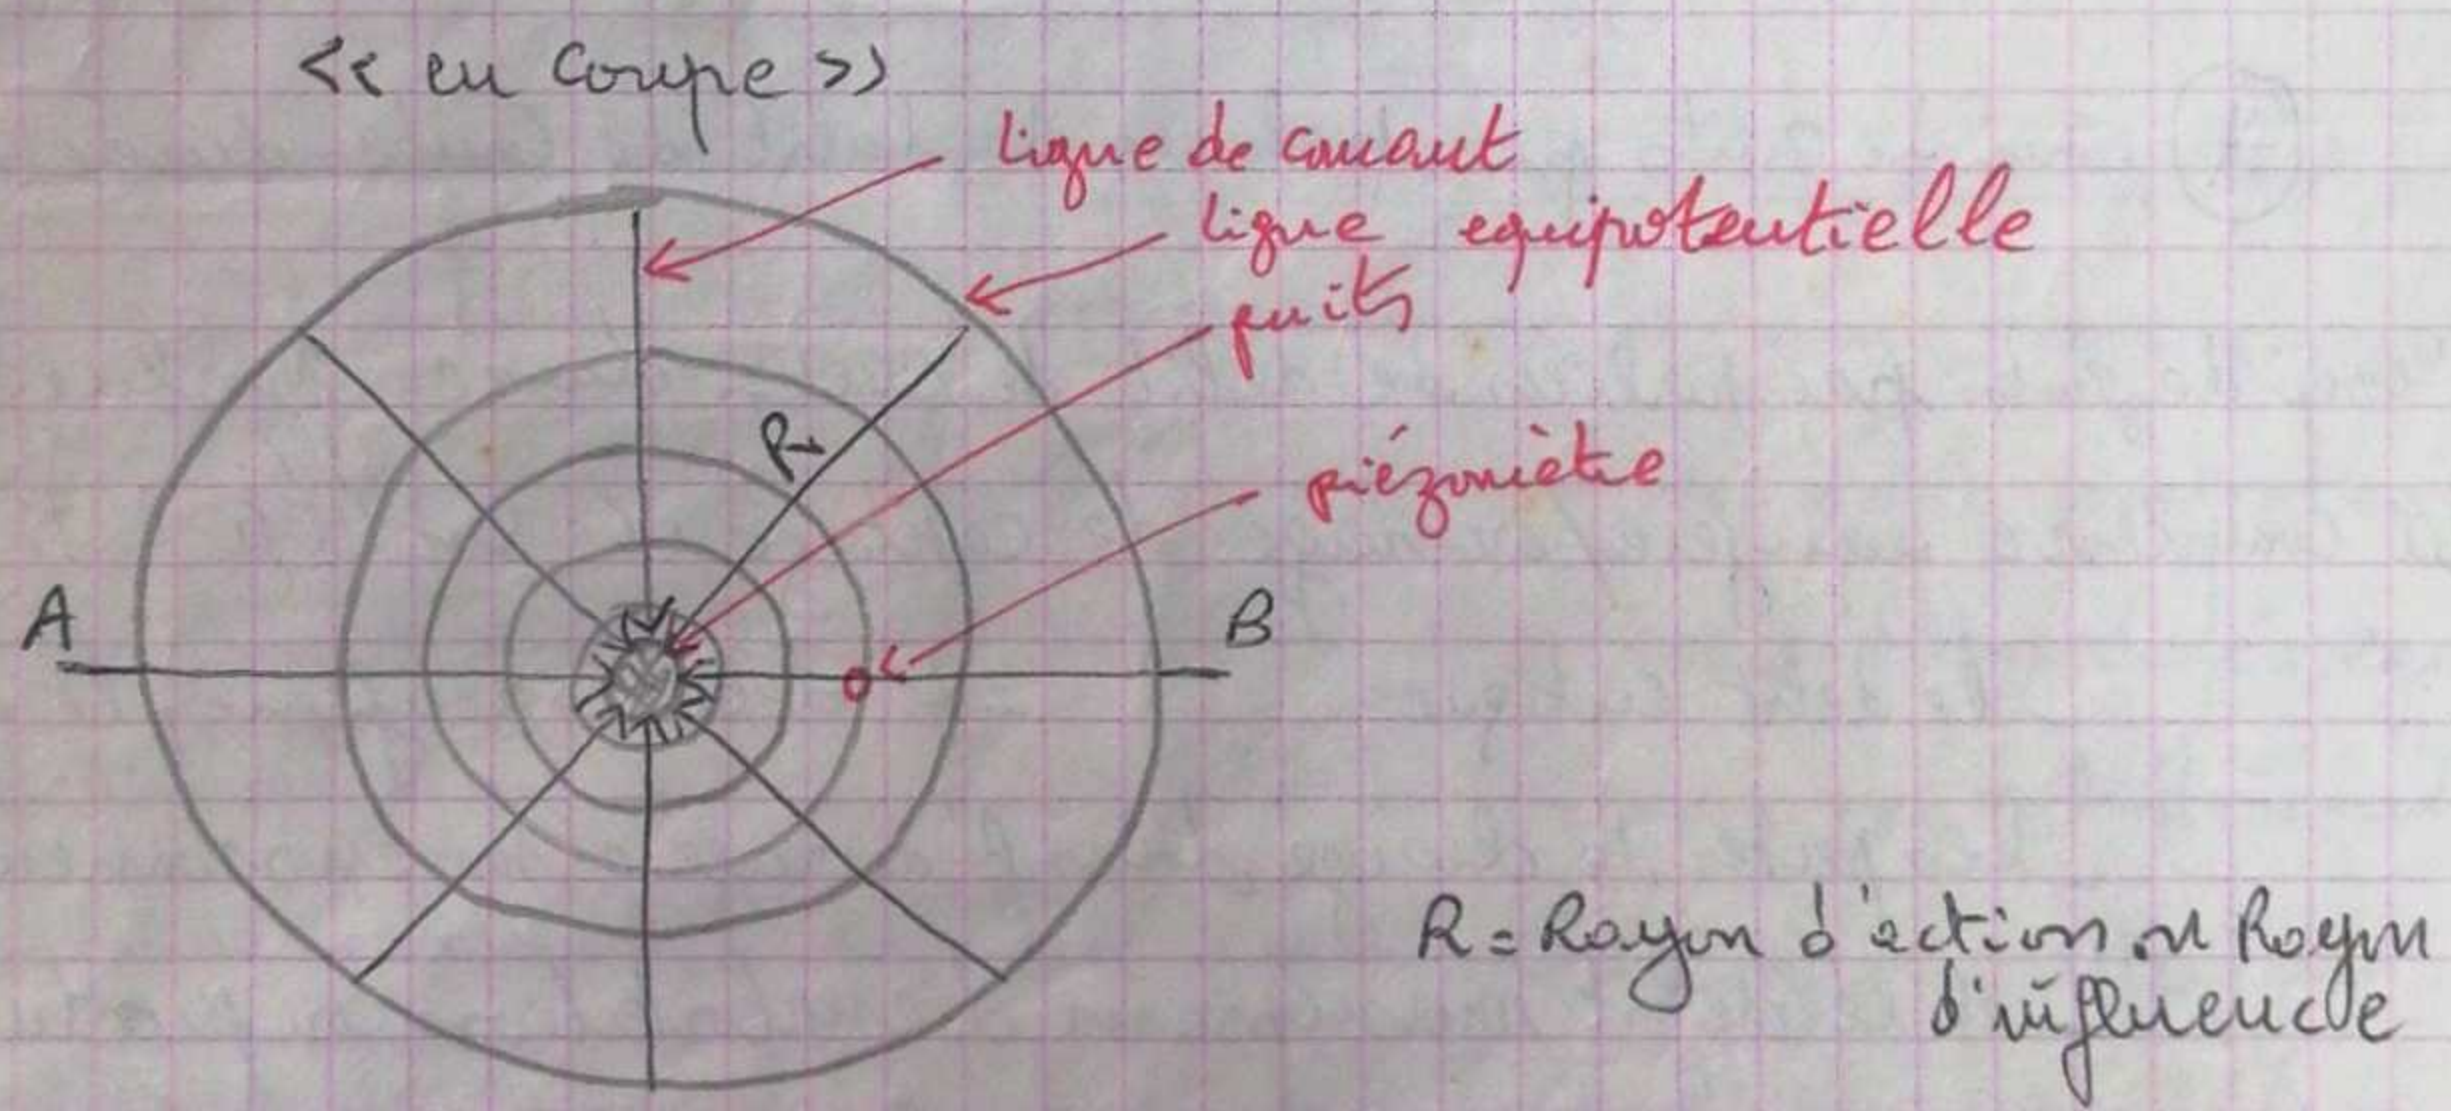 << en Coupe >>
ligne de courant
ligne equipotentielle
puits
R
piézomètre
A
B
R = Rayon d'action ou Rayon
d'influence